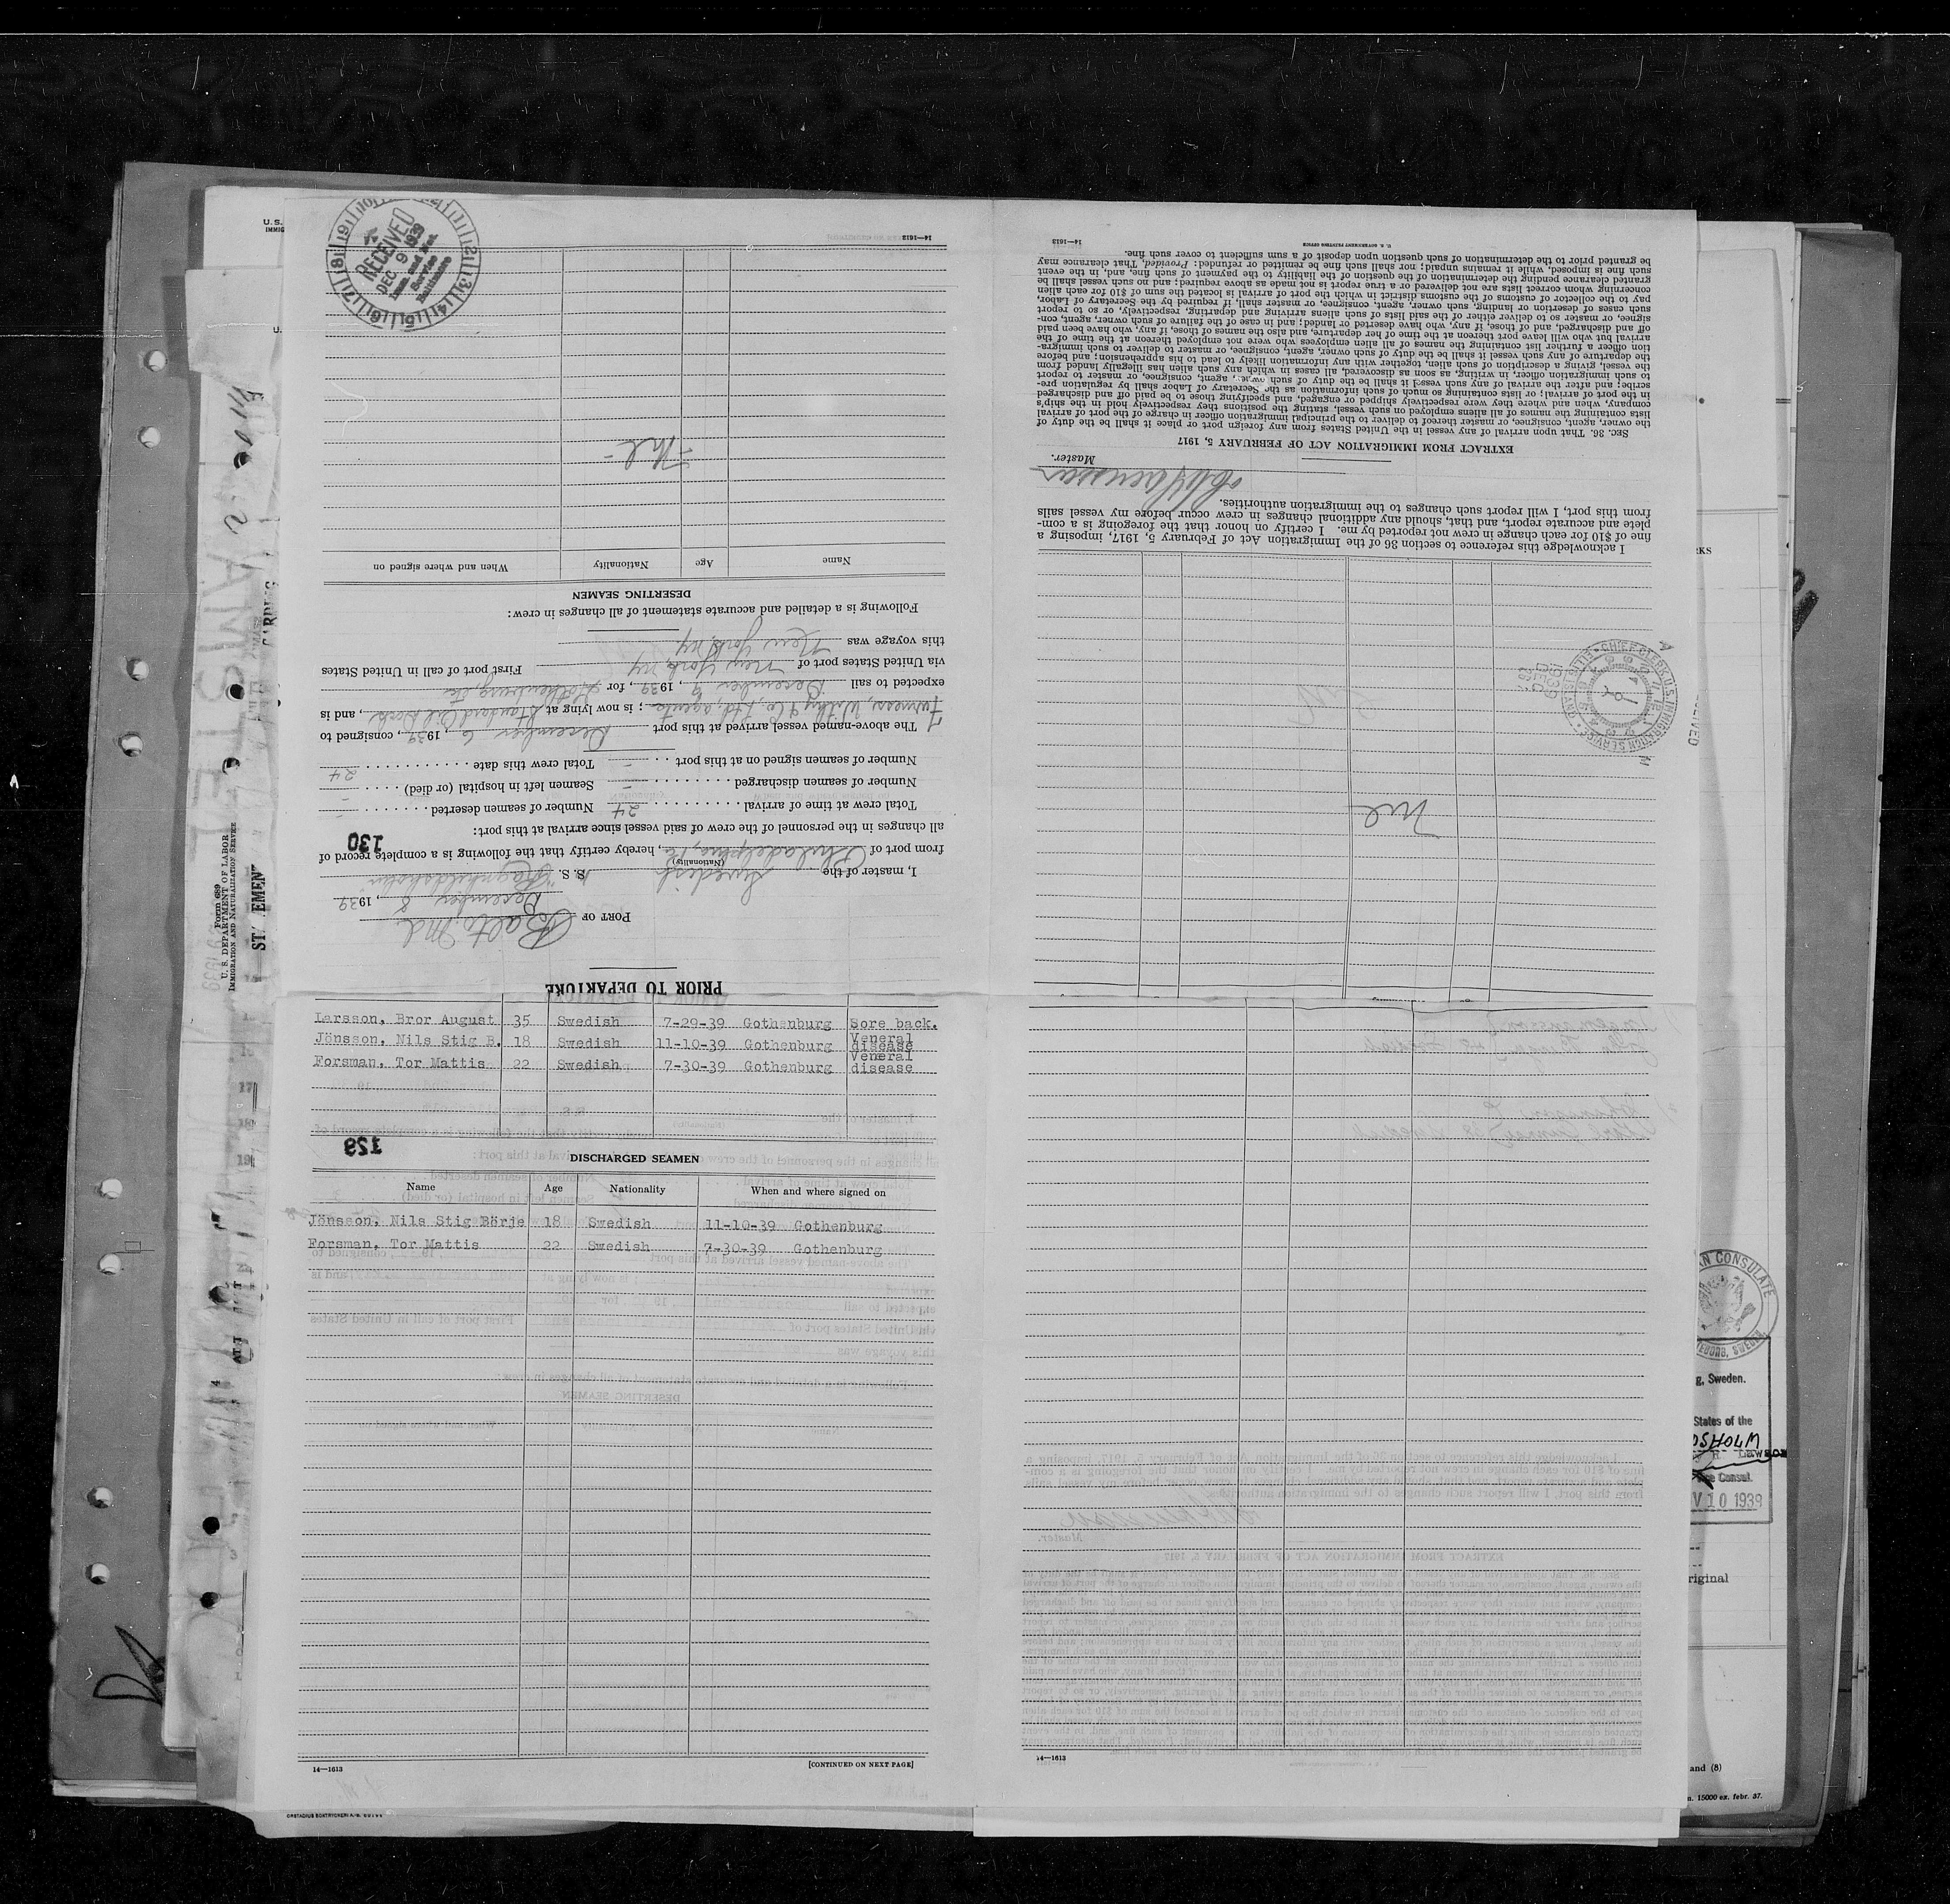 PRIOR TO DEPARTURE
PORT OF Balto. Md
December 8, 1939
I, master of the Swedish S. S. "Ragnhildsholm"
(Nationality)
from port of Philadelphia, Pa, hereby certify that the following is a complete record of
130
all changes in the personnel of the crew of said vessel since arrival at this port:
Total crew at time of arrival 24 Number of seamen deserted –
Number of seamen discharged – Seamen left in hospital (or died) –
Number of seamen signed on at this port – Total crew this date 24
The above-named vessel arrived at this port December 6, 1939, consigned to
Furness, Withy & Co. Ltd, agents; is now lying at Standard Oil Dock, and is
expected to sail December 9, 1939, for Gothenburg, Sw
via United States port of New York, NY First port of call in United States
this voyage was New York, NY
Following is a detailed and accurate statement of all changes in crew:
DESERTING SEAMEN
Name Age Nationality When and where signed on
– Nil –
14—1613
RECEIVED
DEC 9 1939
Imm. and Nat.
Service
Baltimore
Nil
I acknowledge this reference to section 36 of the Immigration Act of February 5, 1917, imposing a
fine of $10 for each change in crew not reported by me. I certify on honor that the foregoing is a com-
plete and accurate report, and that, should any additional changes in crew occur before my vessel sails
from this port, I will report such changes to the immigration authorities.
Master.
EXTRACT FROM IMMIGRATION ACT OF FEBRUARY 5, 1917
SEC. 36. That upon arrival of any vessel in the United States from any foreign port or place it shall be the duty of
the owner, agent, consignee, or master thereof to deliver to the principal immigration officer in charge of the port of arrival
lists containing the names of all aliens employed on such vessel, stating the positions they respectively hold in the ship's
company, when and where they were respectively shipped or engaged, and specifying those to be paid off and discharged
in the port of arrival; or lists containing so much of such information as the Secretary of Labor shall by regulation pre-
scribe; and after the arrival of any such vessel it shall be the duty of such owner, agent, consignee, or master to report
to such immigration officer, in writing, as soon as discovered, all cases in which any such alien has illegally landed from
the vessel, giving a description of such alien, together with any information likely to lead to his apprehension; and before
the departure of any such vessel it shall be the duty of such owner, agent, consignee, or master to deliver to such immigra-
tion officer a further list containing the names of all alien employees who were not employed thereon at the time of the
arrival but who will leave port thereon at the time of her departure, and also the names of those, if any, who have been paid
off and discharged, and of those, if any, who have deserted or landed; and in case of the failure of such owner, agent, con-
signee, or master so to deliver either of the said lists of such aliens arriving and departing, respectively, or so to report
such cases of desertion or landing, such owner, agent, consignee, or master shall, if required by the Secretary of Labor,
pay to the collector of customs of the customs district in which the port of arrival is located the sum of $10 for each alien
concerning whom correct lists are not delivered or a true report is not made as above required; and no such vessel shall be
granted clearance pending the determination of the question of the liability to the payment of such fine, and, in the event
such fine is imposed, while it remains unpaid; nor shall such fine be remitted or refunded: Provided, That clearance may
be granted prior to the determination of such question upon deposit of a sum sufficient to cover such fine.
U. S. GOVERNMENT PRINTING OFFICE
14—1613
CHIEF CLERK U.S. IMMIGRATION SERVICE
1939
DEC
Larsson, Bror August 35 Swedish 7-29-39 Gothenburg Sore back.
Jönsson, Nils Stig B. 18 Swedish 11-10-39 Gothenburg Veneral disease
Forsman, Tor Mattis 22 Swedish 7-30-39 Gothenburg Veneral disease
129
DISCHARGED SEAMEN
Name Age Nationality When and where signed on
Jönsson, Nils Stig Börje 18 Swedish 11-10-39 Gothenburg
Forsman, Tor Mattis 22 Swedish 7-30-39 Gothenburg
14—1613
[CONTINUED ON NEXT PAGE]
14—1613
Form 689
U. S. DEPARTMENT OF LABOR
IMMIGRATION AND NATURALIZATION SERVICE
AN CONSULATE
g, Sweden.
States of the
DSHOLM
Vice Consul.
V 10 1939
riginal
and (8)
n. 15000 ex. febr. 37.